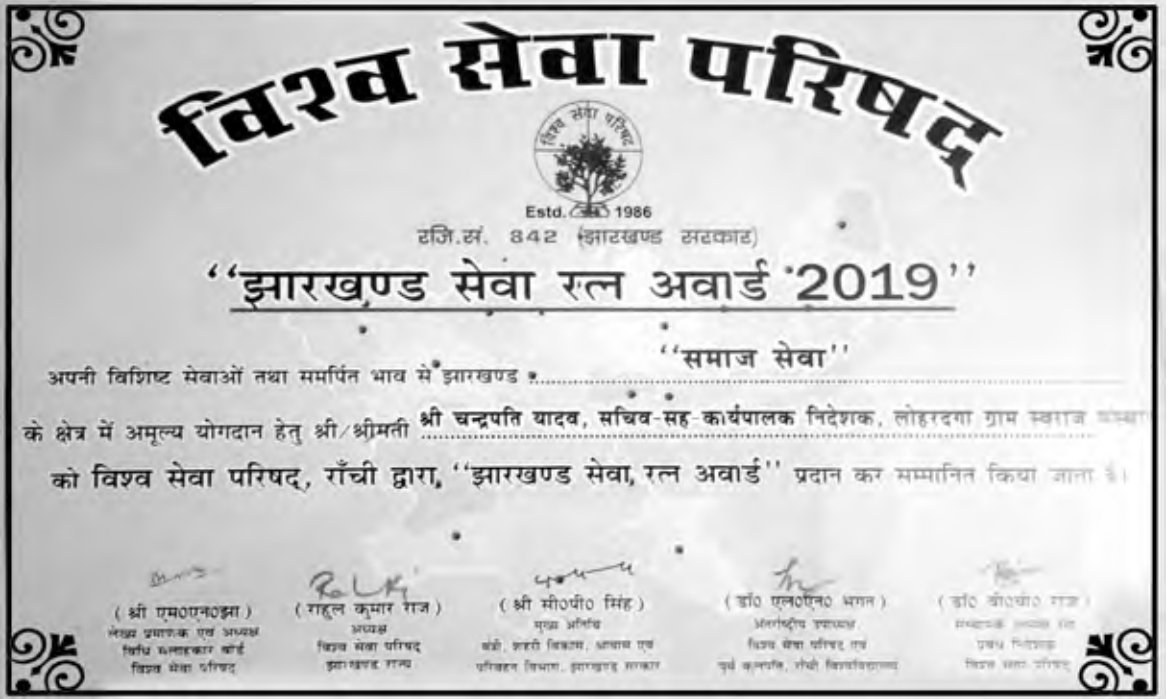 विश्व सेवा परिषद
विश्व सेवा परिषद
Estd. 1986
रजि.सं. 842 (झारखण्ड सरकार)
‘‘झारखण्ड सेवा रत्न अवार्ड 2019’’
‘‘समाज सेवा’’
अपनी विशिष्ट सेवाओं तथा समर्पित भाव से झारखण्ड
के क्षेत्र में अमूल्य योगदान हेतु श्री/श्रीमती श्री चन्द्रपति यादव, सचिव-सह-कार्यपालक निदेशक, लोहरदगा ग्राम स्वराज संस्थान
को विश्व सेवा परिषद, राँची द्वारा, ‘‘झारखण्ड सेवा रत्न अवार्ड’’ प्रदान कर सम्मानित किया जाता है।
( श्री एम०एन०झा )
लेख्य प्रमाणक एवं अध्यक्ष
विधि सलाहकार बोर्ड
विश्व सेवा परिषद
( राहुल कुमार राज )
अध्यक्ष
विश्व सेवा परिषद
झारखण्ड राज्य
( श्री सी०पी० सिंह )
मुख्य अतिथि
मंत्री, शहरी विकास, आवास एवं
परिवहन विभाग, झारखण्ड सरकार
( डॉ० एल०एन० भगत )
अंतर्राष्ट्रीय उपाध्यक्ष
विश्व सेवा परिषद एवं
पूर्व कुलपति, राँची विश्वविद्यालय
( डॉ०
प्रबंध निदेशक
विश्व सेवा परिषद